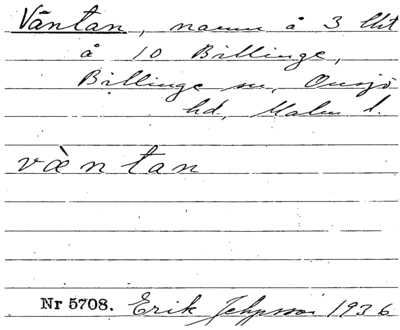 Väntan, namn å 3 lht
å 10 Billinge,
Billinge sn, Onsjö
hd, Malm. l.
vàntan
Nr 5708. Erik 1936